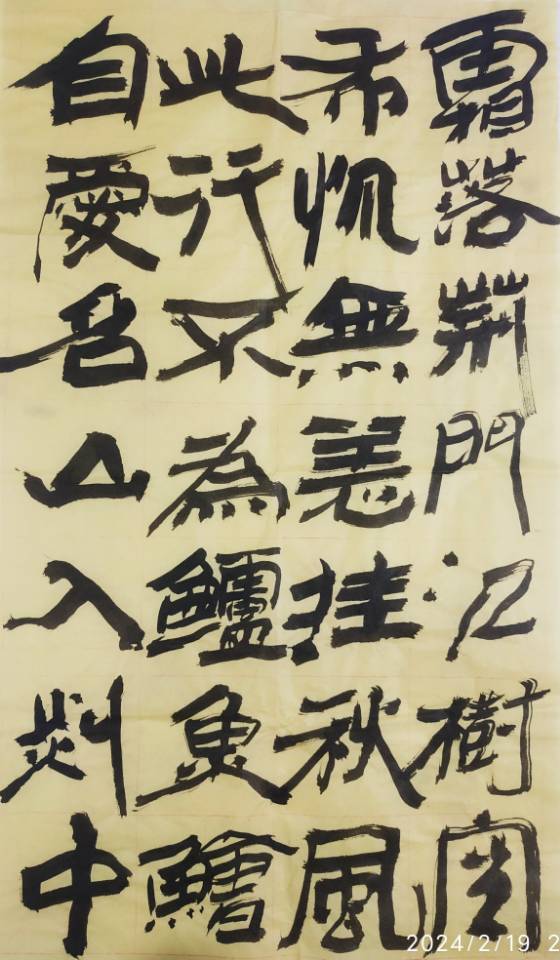 霜落荊門江樹空
布帆無恙挂秋風
此行不為鱸魚鱠
自愛名山入剡中
2024/2/19 2